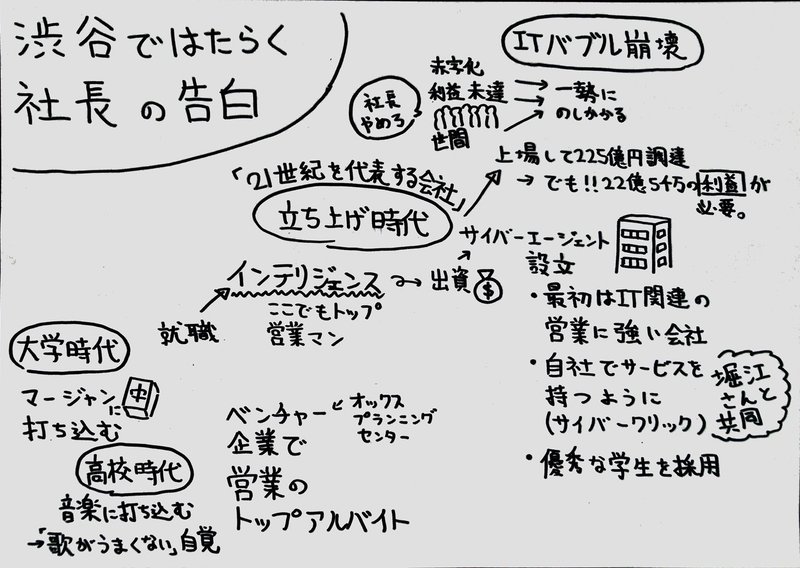 渋谷ではたらく
社長の告白
ITバブル崩壊
赤字化
利益未達
世間
社長
やめろ
一勢に
のしかかる
上場して225億円調達
→でも!!22億5千万の利益が
必要。
「21世紀を代表する会社」
立ち上げ時代
サイバーエージェント
設立
・最初はIT関連の
営業に強い会社
・自社でサービスを
持つように
(サイバークリック)
堀江
さんと
共同
・優秀な学生を採用
就職
インテリジェンス
ここでもトップ
営業マン
出資
$
大学時代
マージャンに
中
打ち込む
ベンチャー
企業で
営業の
トップアルバイト
オックス
プランニング
センター
高校時代
音楽に打ち込む
→「歌がうまくない」自覚